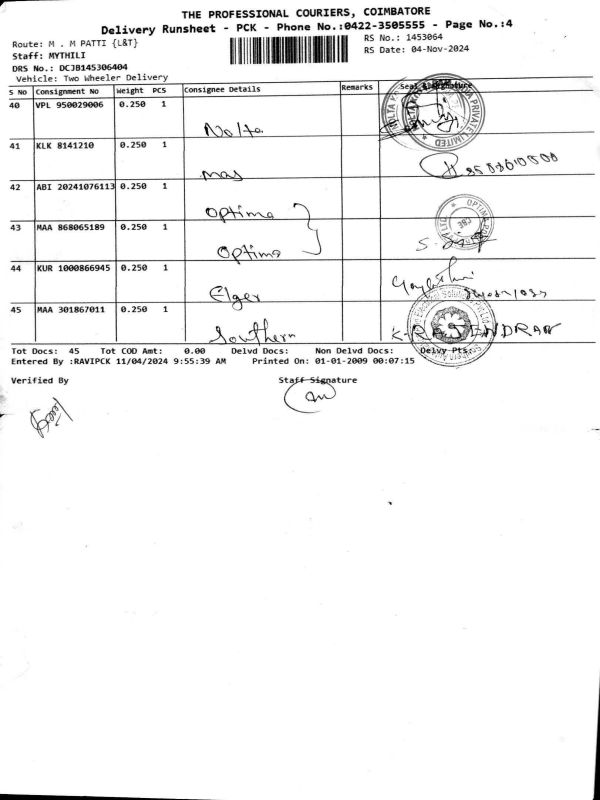 THE PROFESSIONAL COURIERS, COIMBATORE
Delivery Runsheet - PCK - Phone No.:0422-3505555 - Page No.:4
Route: M . M PATTI {L&T}
RS No.: 1453064
Staff: MYTHILI
RS Date: 04-Nov-2024
DRS No.: DCJB145306404
Vehicle: Two Wheeler Delivery
S No Consignment No Weight PCS Consignee Details Remarks Seal & Signature
40 VPL 950029006 0.250 1
Nolta
PRIVATE LIMITED
41 KLK 8141210 0.250 1
mas
42 ABI 20241076113 0.250 1
Optima
43 MAA 868065189 0.250 1
Optima
44 KUR 1000866945 0.250 1
Elger
45 MAA 301867011 0.250 1
Southern K. RAJENDRAN
Tot Docs: 45 Tot COD Amt: 0.00 Delvd Docs: Non Delvd Docs: Delvy Pts:
Entered By :RAVIPCK 11/04/2024 9:55:39 AM Printed On: 01-01-2009 00:07:15
Verified By Staff Signature